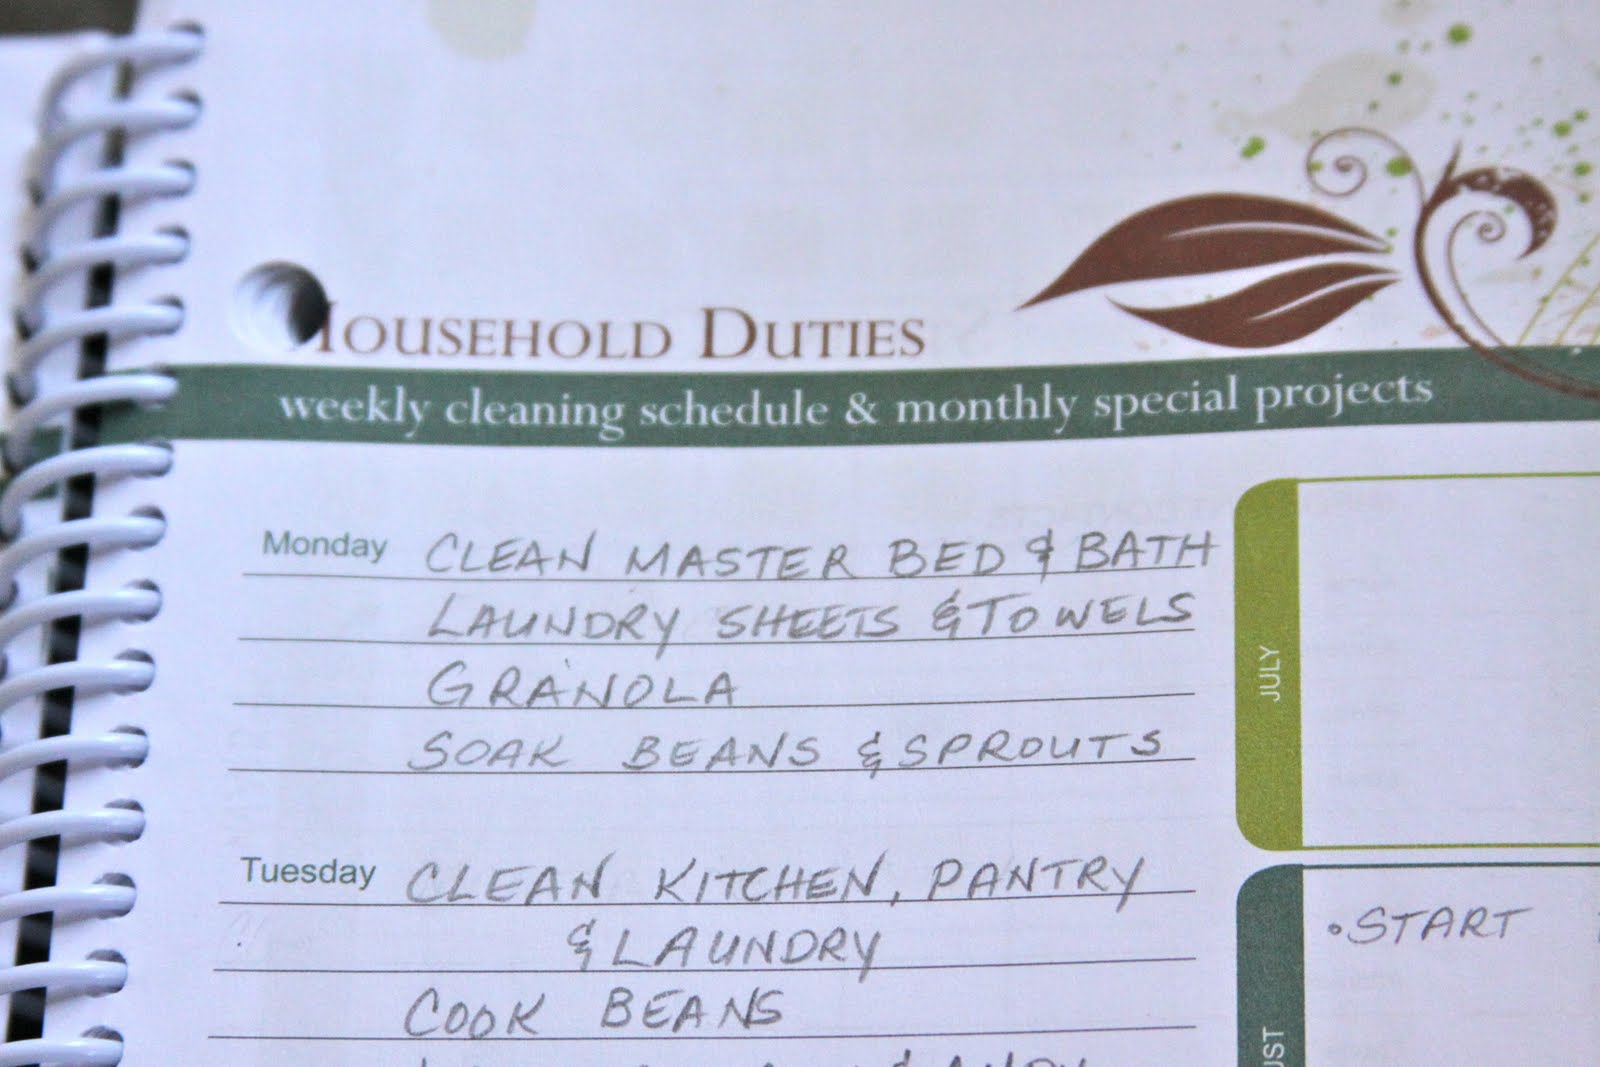 HOUSEHOLD DUTIES
weekly cleaning schedule & monthly special projects
Monday CLEAN MASTER BED & BATH
LAUNDRY SHEETS & TOWELS
GRANOLA
SOAK BEANS & SPROUTS
Tuesday CLEAN KITCHEN, PANTRY
& LAUNDRY
COOK BEANS
JULY
• START